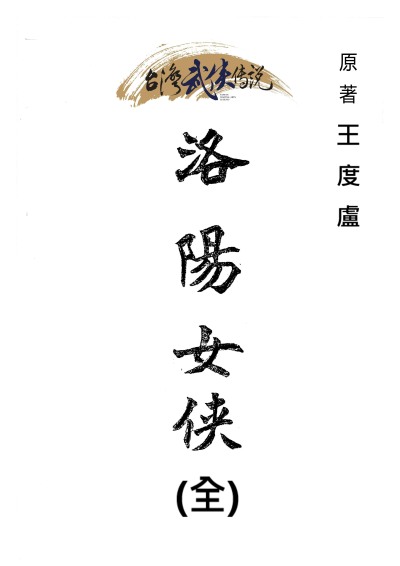 台灣武俠傳說
原著王度盧
洛陽女俠
(全)